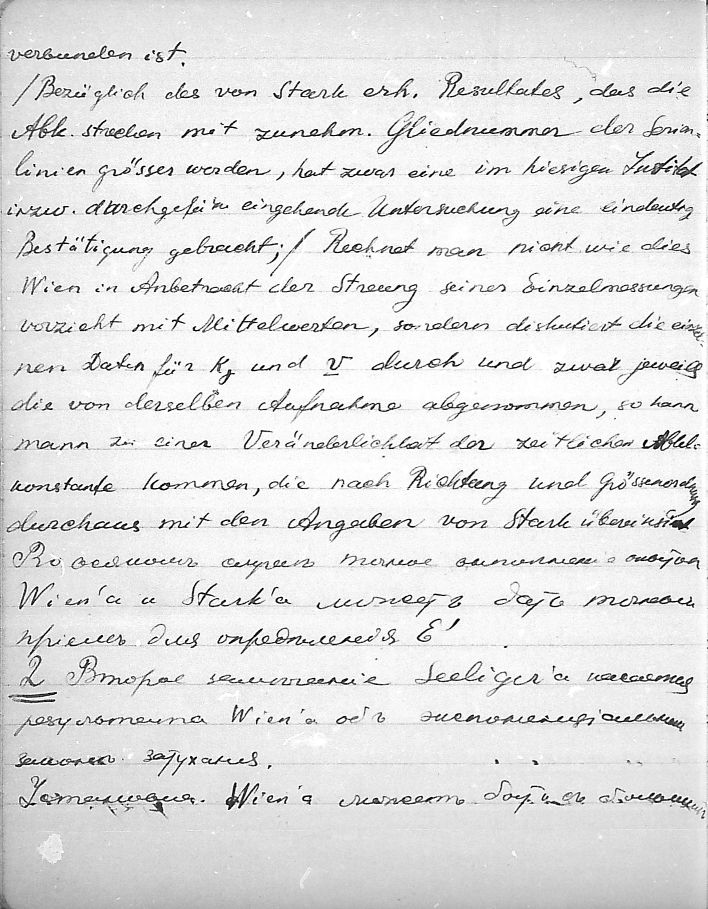 verbunden ist.
/Bezüglich des von Stark erh. Resultates, das die
Abk. strecken mit zunehm. Gliednummer der Serien-
linien grösser werden, hat zwar eine im hiesigen Institut
inzw. durchgeführ eingehende Untersuchung eine eindeutig
Bestätigung gebracht;/ Rechnet man nicht wie dies
Wien in Anbetracht der Streung seiner Einzelmessungen
vorzieht mit Mittelwerten, sondern diskutiert die einzel-
nen Daten für und v durch und zwar jeweils
die von derselben Aufnahme abgenommen, so kann
mann zu einer Veränderlichkeit der zeitlichen Abkl.-
konstante kommen, die nach Richtung und Grössenordnung
durchaus mit den Angaben von Stark übereinstim
Во всякомъ случаѣ точное выполненіе опытов
Wien'a и Stark'a можетъ дать точный
пріемъ для опредѣленія E'
2 Второе замечаніе Seeliger'a касается
результата Wien'a объ экспоненціальном
законѣ затуханія.
Установка Wien'a можетъ быть съ